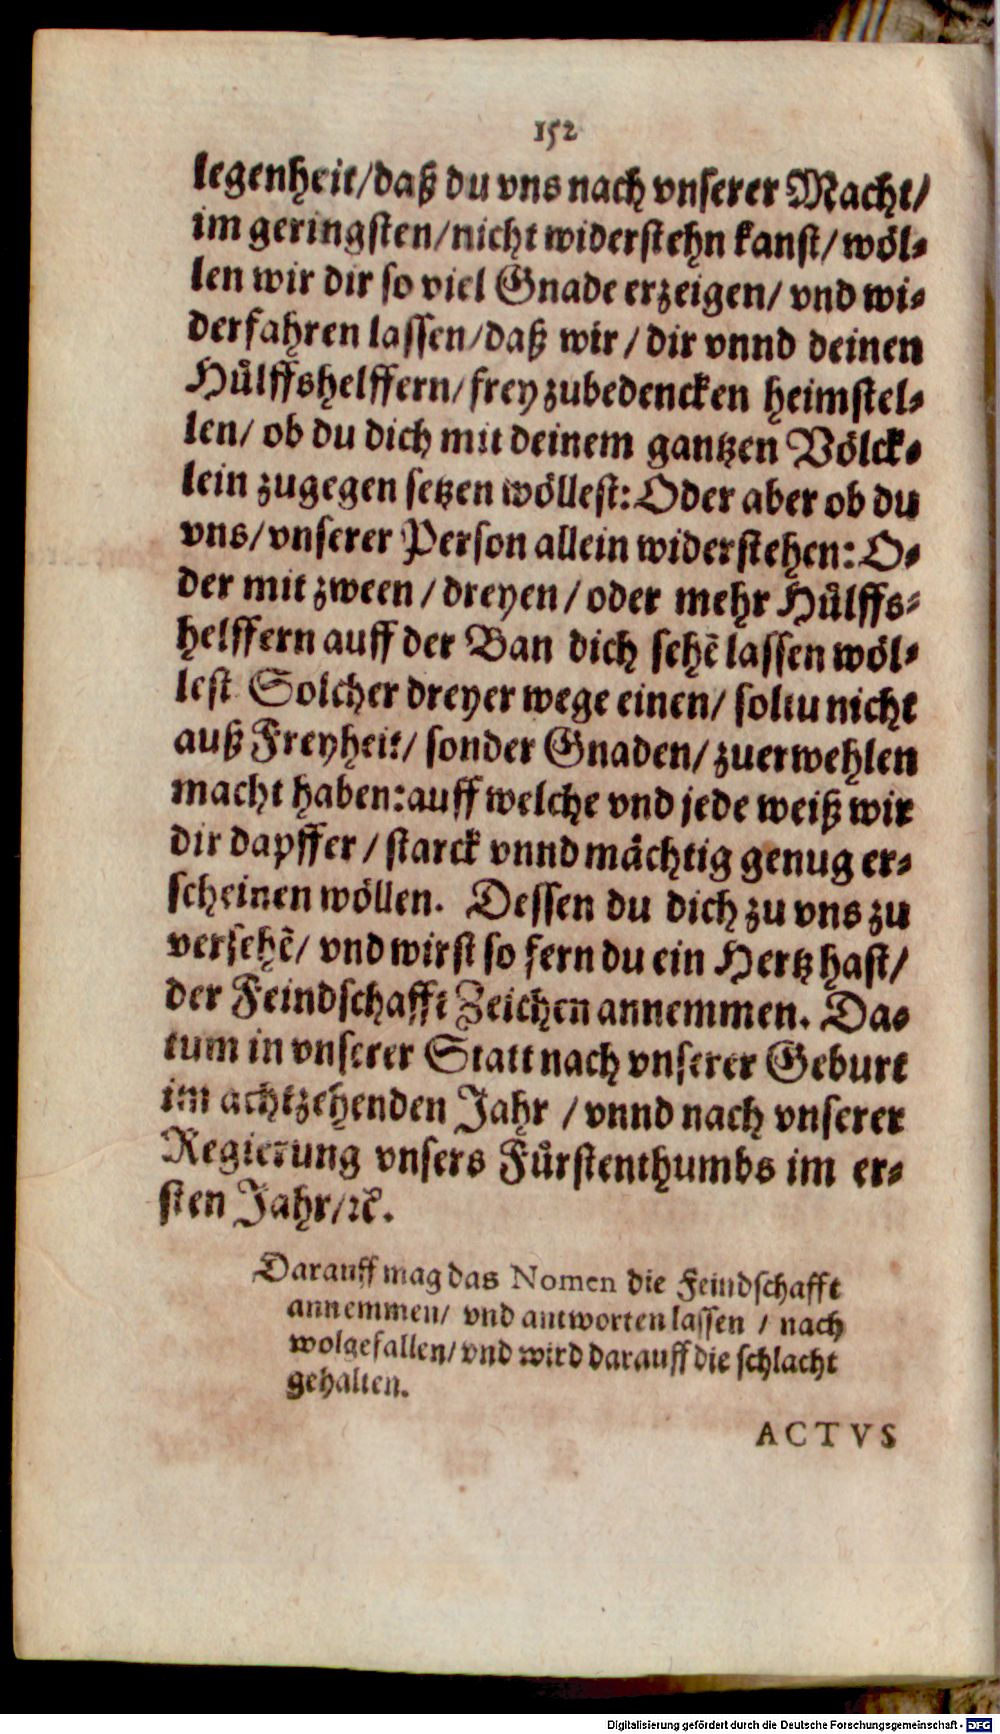 152
legenheit/daß du vns nach vnserer Macht/
im geringsten/nicht widerstehn kanst/ wöl-
len wir dir so viel Gnade erzeigen/ vnd wi-
derfahren lassen/daß wir / dir vnnd deinen
Hůlffshelffern/frey zubedencken heimstel-
len/ ob du dich mit deinem gantzen Völck-
lein zugegen setzen wöllest: Oder aber ob du
vns/vnserer Person allein widerstehen: O-
der mit zween / dreyen / oder mehr Hůlffs-
helffern auff der Ban dich sehẽ lassen wöl-
lest Solcher dreyer wege einen/ soltu nicht
auß Freyheit/ sonder Gnaden/ zuerwehlen
macht haben: auff welche vnd jede weiß wir
dir dapffer / starck vnnd mächtig genug er-
scheinen wöllen. Dessen du dich zu vns zu
versehẽ/ vnd wirst so fern du ein Hertz hast/
der Feindschafft Zeichen annemmen. Da-
tum in vnserer Statt nach vnserer Geburt
im achtzehenden Jahr / vnnd nach vnserer
Regierung vnsers Fürstenthumbs im er-
sten Jahr/ꝛc.
Darauff mag das Nomen die Feindschafft
annemmen/ vnd antworten lassen / nach
wolgefallen/ vnd wird darauff die schlacht
gehalten.
ACTVS
Digitalisierung gefördert durch die Deutsche Forschungsgemeinschaft - DFG